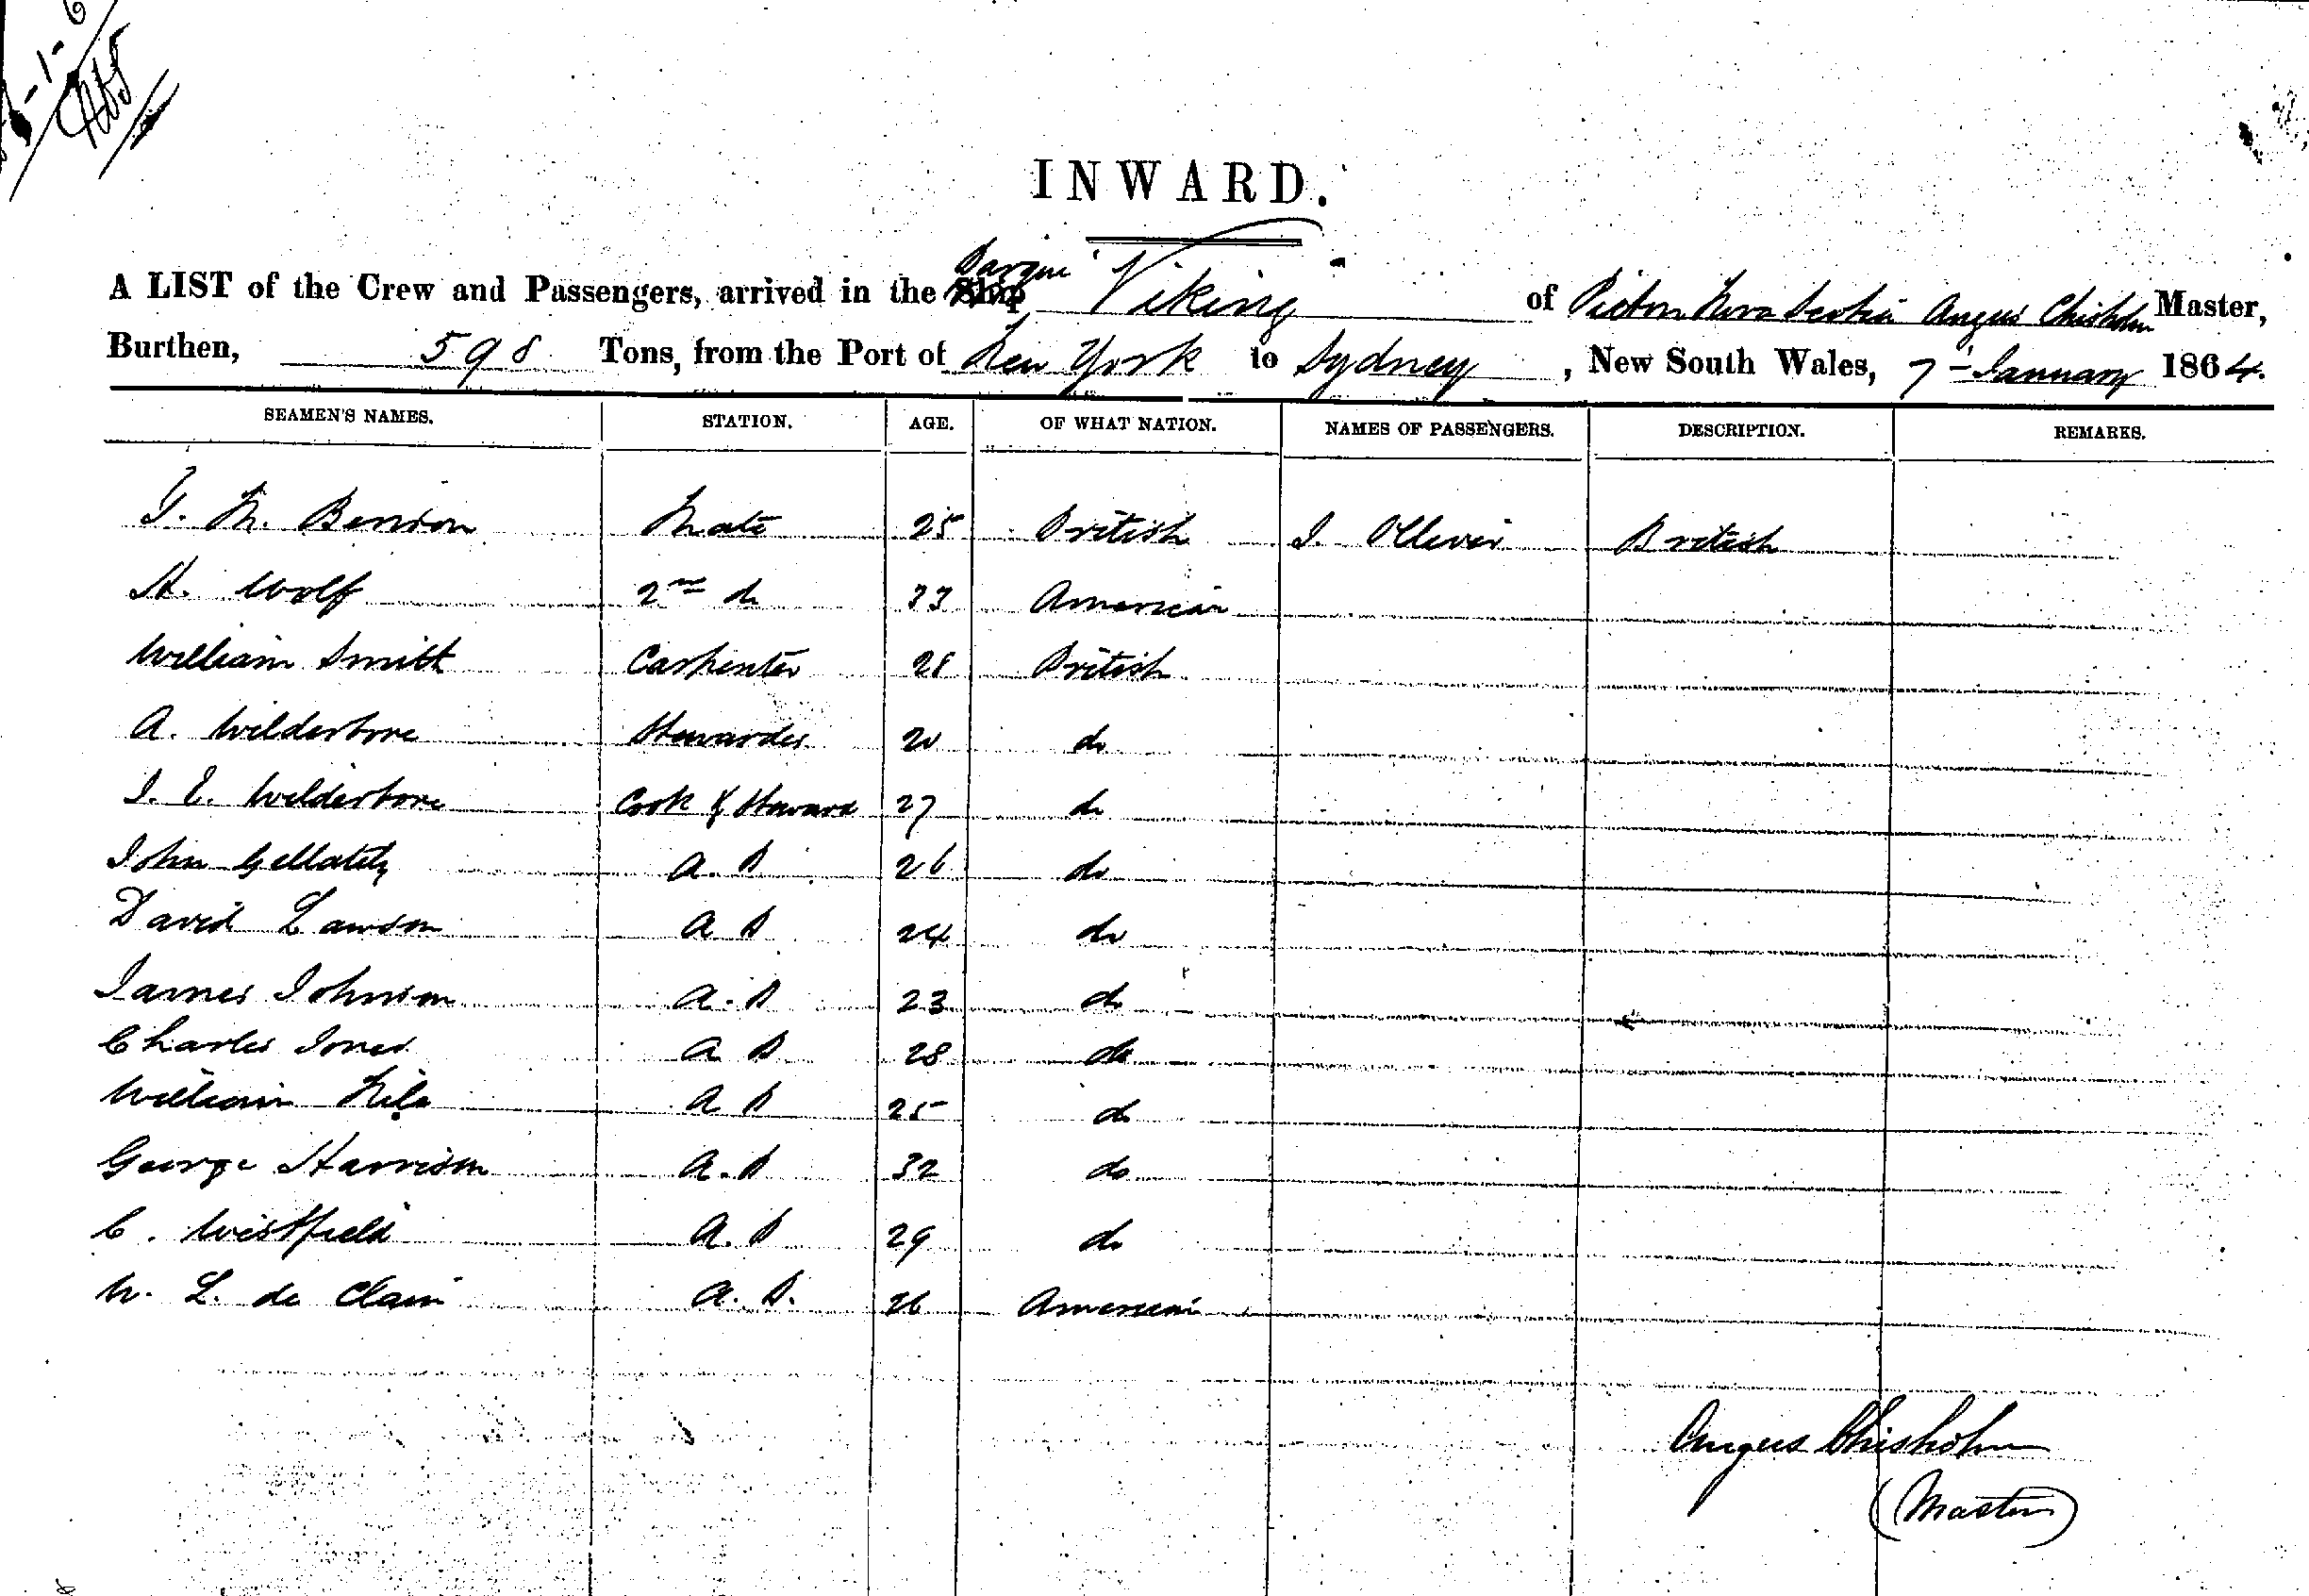 INWARD.
A LIST of the Crew and Passengers, arrived in the Ship Barque Viking of Pictou Nova Scotia Angus Chisholm Master,
Burthen, 598 Tons, from the Port of New York to Sydney, New South Wales, 7 January 1864.
SEAMEN'S NAMES. STATION. AGE. OF WHAT NATION. NAMES OF PASSENGERS. DESCRIPTION. REMARKS.
G. M. Benison Mate 25 British J. Ollivier British
H. Wolf 2nd do 33 American
William Smith Carpenter 28 British
A. Wilderbore Stewardes 20 do
J. E. Wilderbore Cook & Steward 27 do
John Gellatly A. B 26 do
David Lawson A B 24 do
James Johnson A. B 23 do
Charles Jones A B 28 do
William A B 25 do
George Harrison A. B 32 do
C. Westfield A. B 29 do
W. L. de Clain A. B. 26 American
Angus Chisholm
(Master)